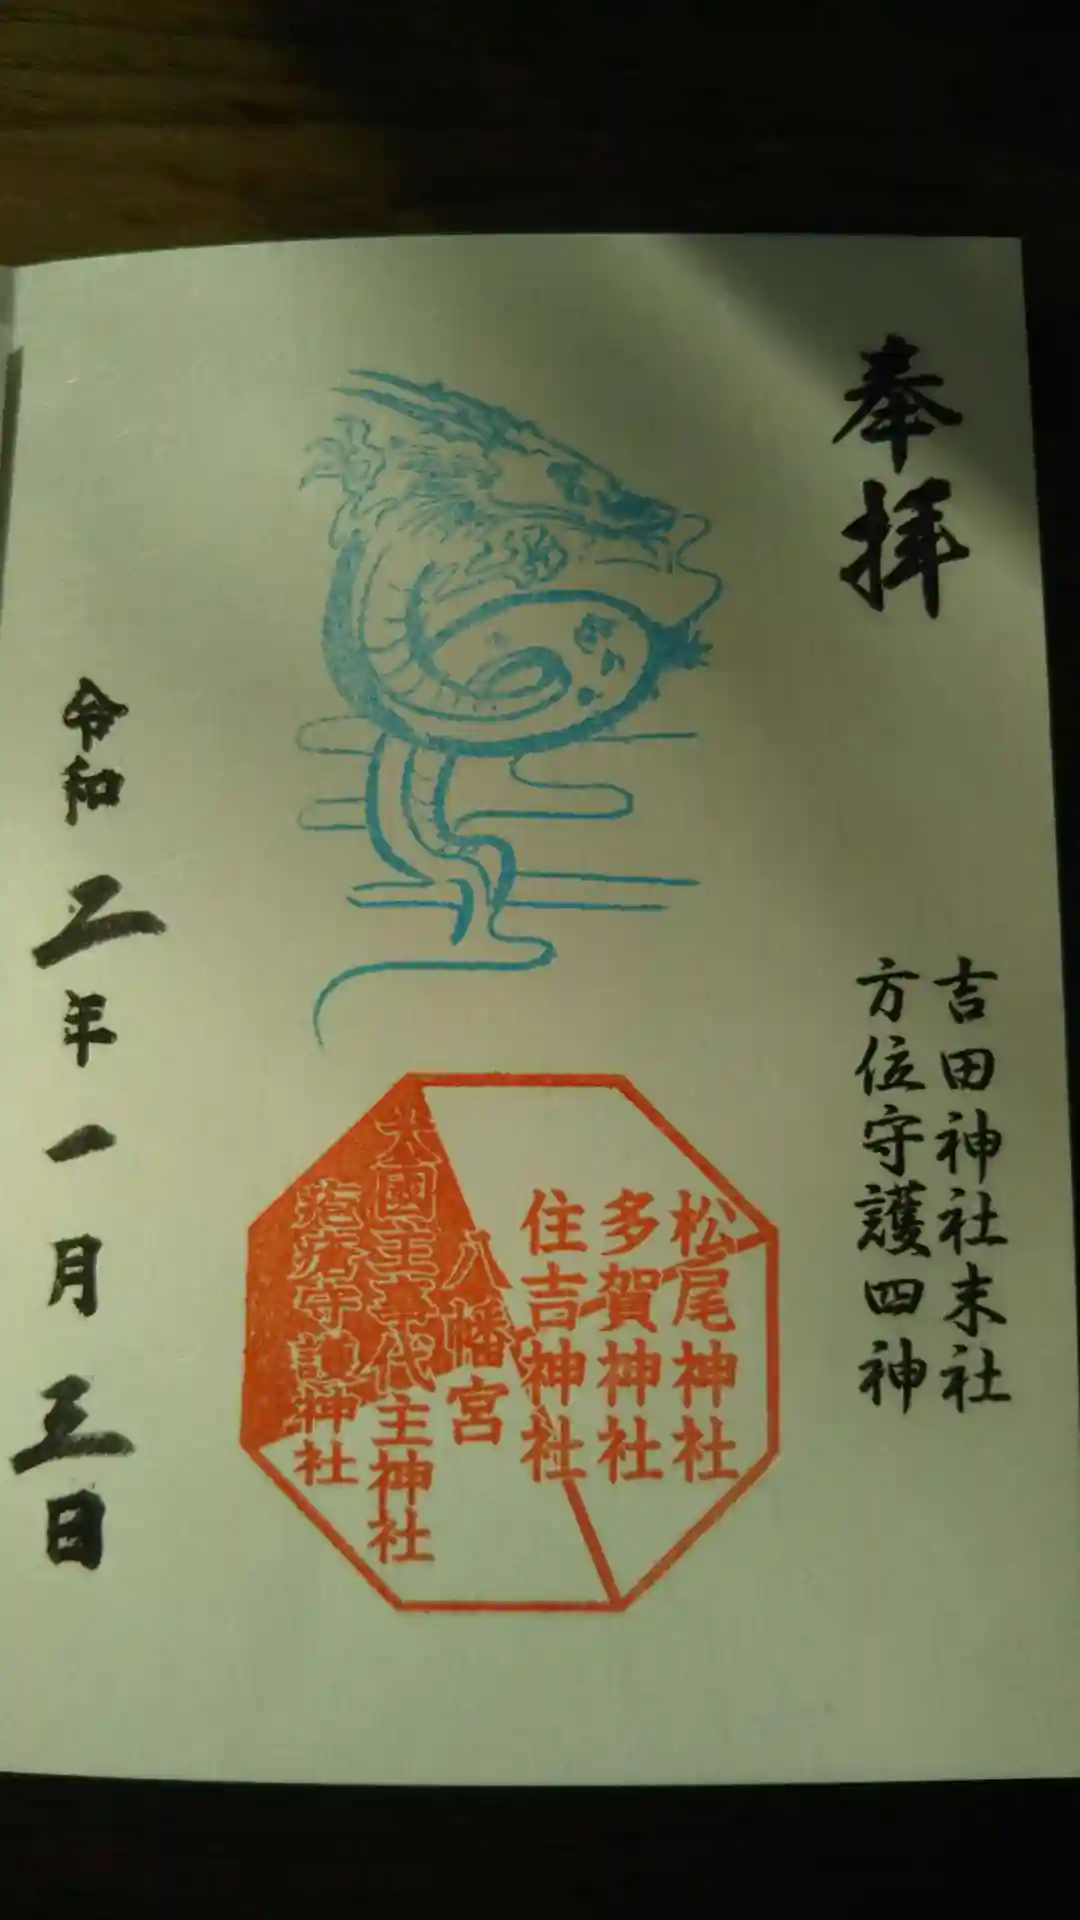 奉拝
吉田神社末社
方位守護四神
松尾神社
多賀神社
住吉神社
八幡宮
大國主事代主神社
疱瘡守護神社
令和二年一月三日